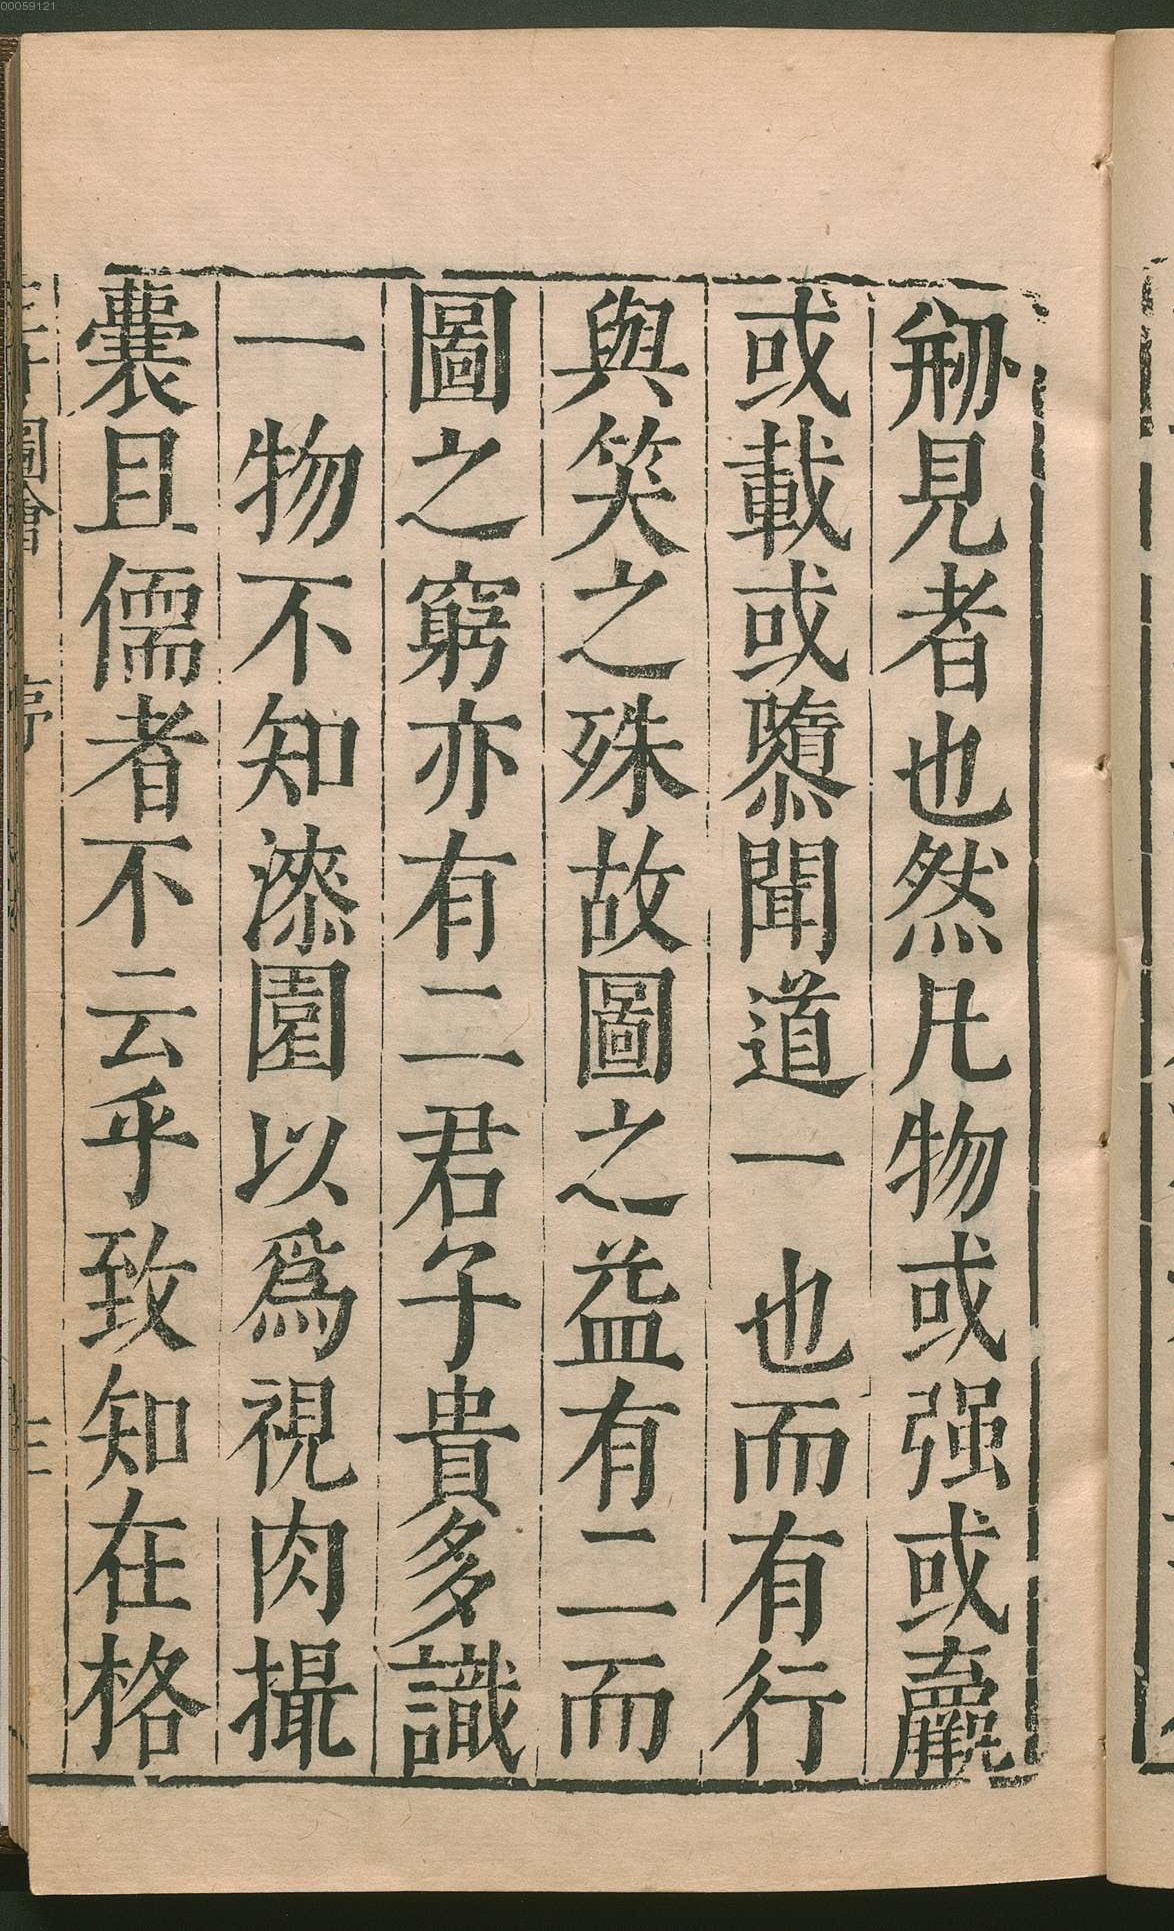 00059121
刱見者也然凡物或强或羸
或載或隳聞道一也而有行
與笑之殊故圖之益有二而
圖之窮亦有二君子貴多識
一物不知漆園以爲視肉撮
囊且儒者不云乎致知在格
圖會 序 三